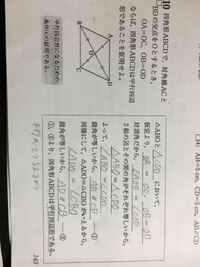 10 四角形ABCDで，対角線ACと
BDの交点をOとするとき，
OA=OC，OB=OD
ならば，四角形ABCDは平行四辺
形であることを証明せよ。
A
D
O
B
C
平行四辺形になるための
条件④の証明である。
△ABOと△CDOにおいて，
仮定より，OA = OC，OB = OD
対頂角だから，∠AOB = ∠COD
2組の辺とその間の角がそれぞれ等しいから，
△ABO ≡ △CDO
よって ∠ABO = ∠CDO
錯角が等しいから，AB // CD ……①
同様にして，△ADO≡△CBOがいえるから，
∠ADO = ∠CBO
錯角が等しいから，AD // CB ……②
①，②より，四角形ABCDは平行四辺形である。
143